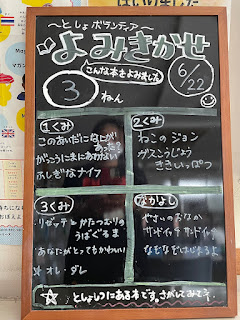 ～としょボランティア～
よみきかせ
こんな本をよみました
6/22
3 ねん
1くみ
このあいだになにが
あった？
がっこうにまにあわない
ふしぎなナイフ
2くみ
ねこのジョン
ガスこうじょう
ききいっぱつ
3くみ
リゼッテとかたつむりの
うばぐるま
あなたがとってもかわいい
☆オレ・ダレ
なかよし
やさいのおなか
サンドイッチサンドイッチ
なぞなぞはじまるよ
☆としょしつにある本です。さがしてみてネ。